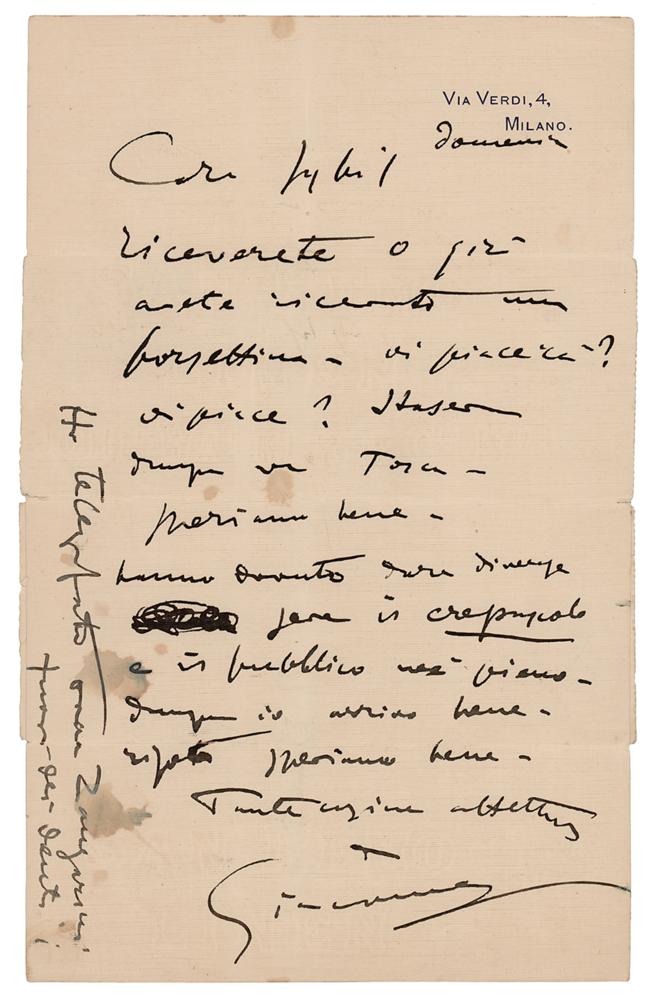 VIA VERDI, 4,
MILANO.
domenica
Cara Sybil
riceverete o già
avete ricevuto una
borsettina – vi piacerà?
vi piace? Stasera
dunque va Tosca –
speriamo bene –
hanno dovuto dare diverse
sere il crepuscolo
e il pubblico è pieno –
dunque io arrivo bene –
ripeto speriamo bene –
Tante cose affettuose
Giacomo
Ho telegrafato ora Zangarini
fuori dei denti!